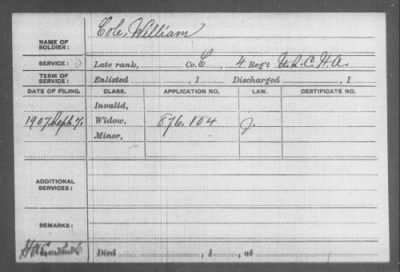 NAME OF SOLDIER: Cole, William
SERVICE: Late rank, Co. C, 4 Reg't U.S.C.H.A.
TERM OF SERVICE: Enlisted , 1 Discharged , 1
DATE OF FILING. CLASS. APPLICATION NO. LAW. CERTIFICATE NO.
Invalid,
1907, Sept. 7. Widow, 876.104 J.
Minor,
ADDITIONAL SERVICES:
REMARKS:
Died , 1 , at